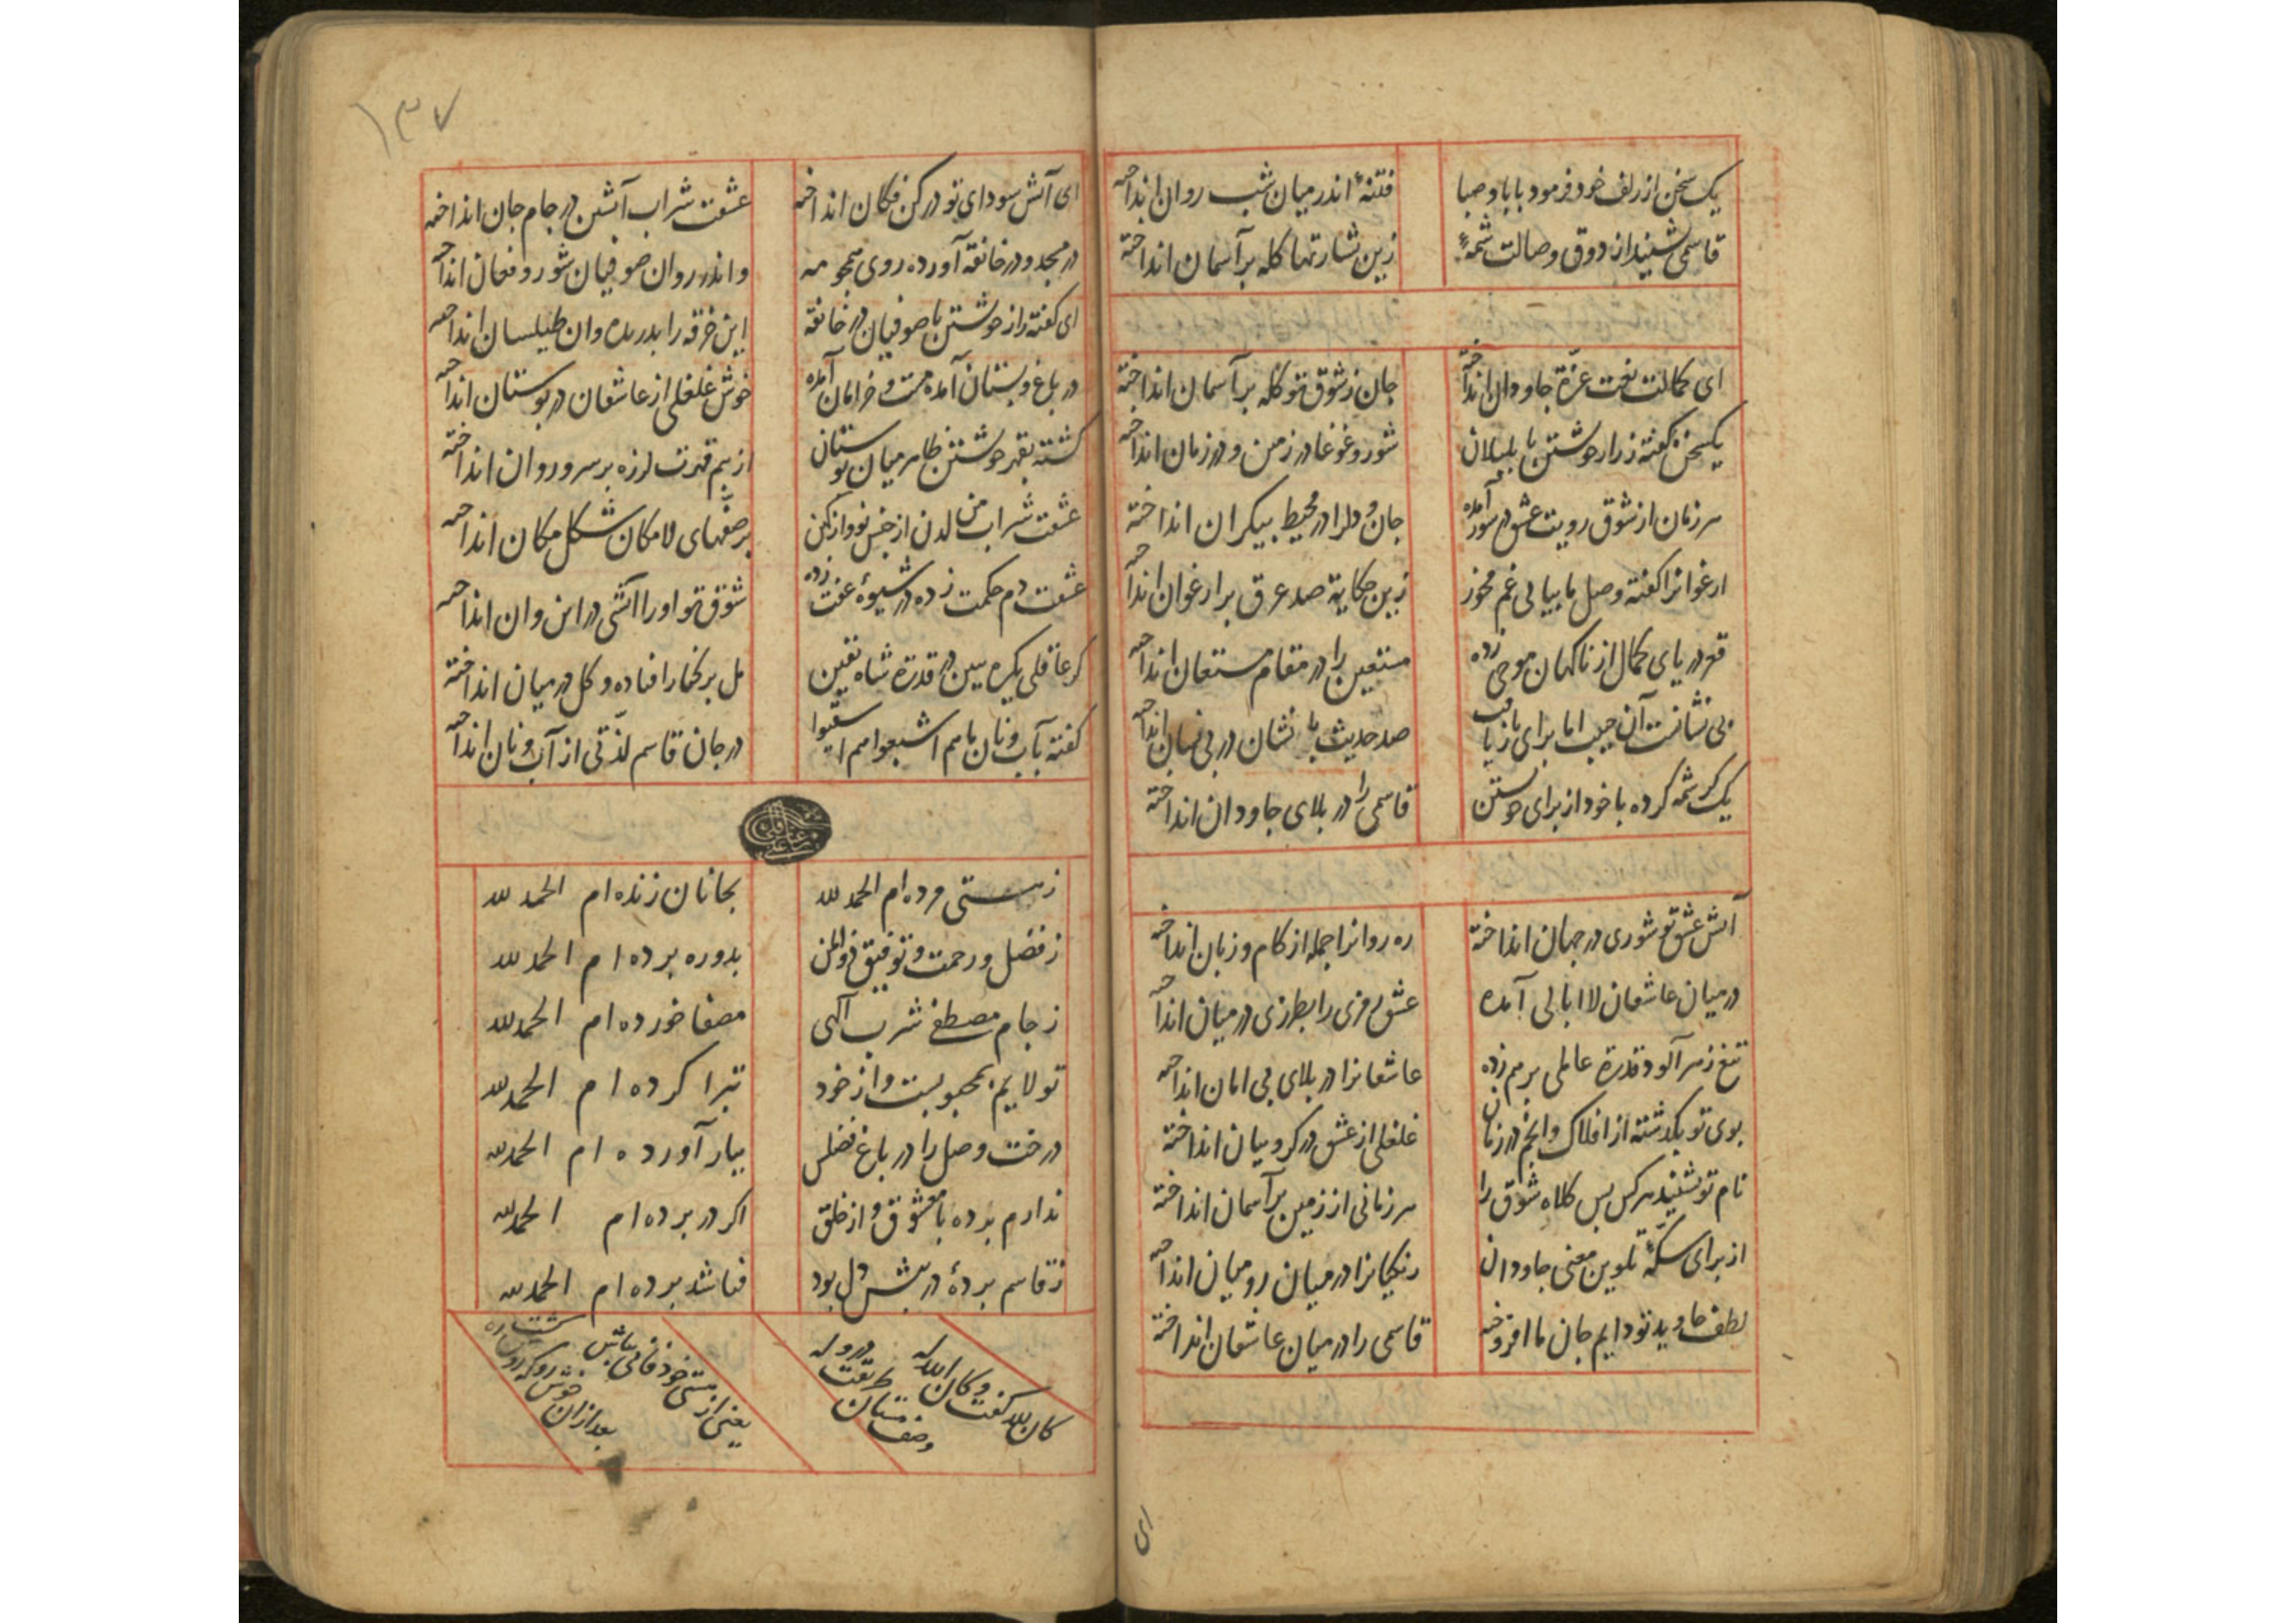 یک سخن از زلف خود فرمود با باد صبا
فتنهٔ اندر میان شب روان انداخته
قاسمی بشنید از ذوق وصالت شمهٔ
زین بشارتها کله بر آسمان انداخته
ای کمالت تخت عزة جاودان انداخته
جان ز شوق تو کله بر آسمان انداخته
یکسخن گفته ز راز خویشتن با بلبلان
شور و غوغا در زمین و در زمان انداخته
هر زمان از شوق رویت عشق در شور آمده
جان و دلرا در محیط بیکران انداخته
ارغوانرا گفته وصل ما بیابی غم مخور
زین حکایة صد عرق بر ارغوان انداخته
قعر دریای کمال از ناکهان موجی زده
مستعین را در مقام مستعان انداخته
بی نشانست آن حبیب اما برای
صد حدیث با نشان در بی انداخته
یک کرشمه کرده با خود از برای خویشتن
قاسمی را در بلای جاودان انداخته
آتش عشق تو شوری در جهان انداخته
ره روانرا جمله از کام و زبان انداخته
در میان عاشقان لا ابالی آمده
عشق رمزی را بطرزی در میان انداخته
تیغ زهر آلود قدرة عالمی بر هم زده
عاشقانرا در بلای بی امان انداخته
بوی تو بگذشته از افلاک و انجم در زمان
غلغلی از عشق در کروبیان انداخته
نام تو بشنید هر کس بس کلاه شوق را
هر زمانی از زمین بر آسمان انداخته
از برای سکهٔ تلوین معنی جاودان
زنکیانرا در میان رومیان انداخته
لطف جاوید تو دایم جان ما افروخته
قاسمی را در میان عاشقان انداخته
ای
۱۳۷
ای آتش سودای تو در کن فکان انداخته
عشقت شراب آتشین در جام جان انداخته
در مسجد و در خانقه آورده روی همچو مه
و اندر روان صوفیان شور و فغان انداخته
ای گفته راز خویشتن با صوفیان در خانقه
این خرقه را بدریده وان طیلسان انداخته
در باغ و بستان آمده مست و خرامان آمده
خوش غلغلی از عاشقان در بوستان انداخته
کشته بقهر خویشتن ظاهر میان بوستان
از بیم قهرت لرزه بر سرو روان انداخته
عشقت شراب من لدن از خمس نو و از کهن
بر صفهای لامکان شکل مکان انداخته
عشقت دم حکمت زده در شیوهٔ عفت زده
شوق تو او را آتشی در این وان انداخته
گر عاقلی یکره ببین در قدرة شاه یقین
مل بر کنار افتاده و گل در میان انداخته
گفته بآب و نان ما هم اشبعوا هم اسقیوا
در جان قاسم لذتی از آب و نان انداخته
ز هستی مرده ام الحمد لله
بجانان زنده ام الحمد لله
ز فضل و رحمت و توفیق ذو المن
بدو ره برده ام الحمد لله
ز جام مصطفی شرب الهی
مصفا خورده ام الحمد لله
تولایم بمحبوبست و از خود
تبرا کرده ام الحمد لله
درخت وصل را در باغ فضلس
ببار آورده ام الحمد لله
ندارم پرده با معشوق و از خلق
اکر در پرده ام الحمد لله
ز قاسم پردهٔ در پیش دل بود
فنا شد پرده ام الحمد لله
کان لله گفت و کان الله له
وصف مستان طریقت
یعنی از هستی خود فانی باش
بعد از آن خوش